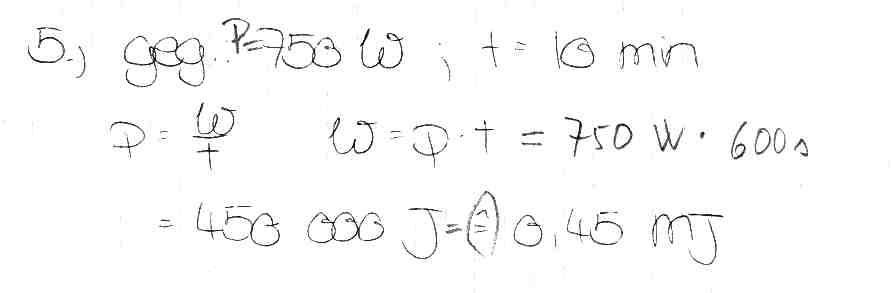 5.) geg.: P=750 W ; t = 10 min
P = W/t W = P · t = 750 W · 600s
= 450 000 J = ≙ 0,45 MJ